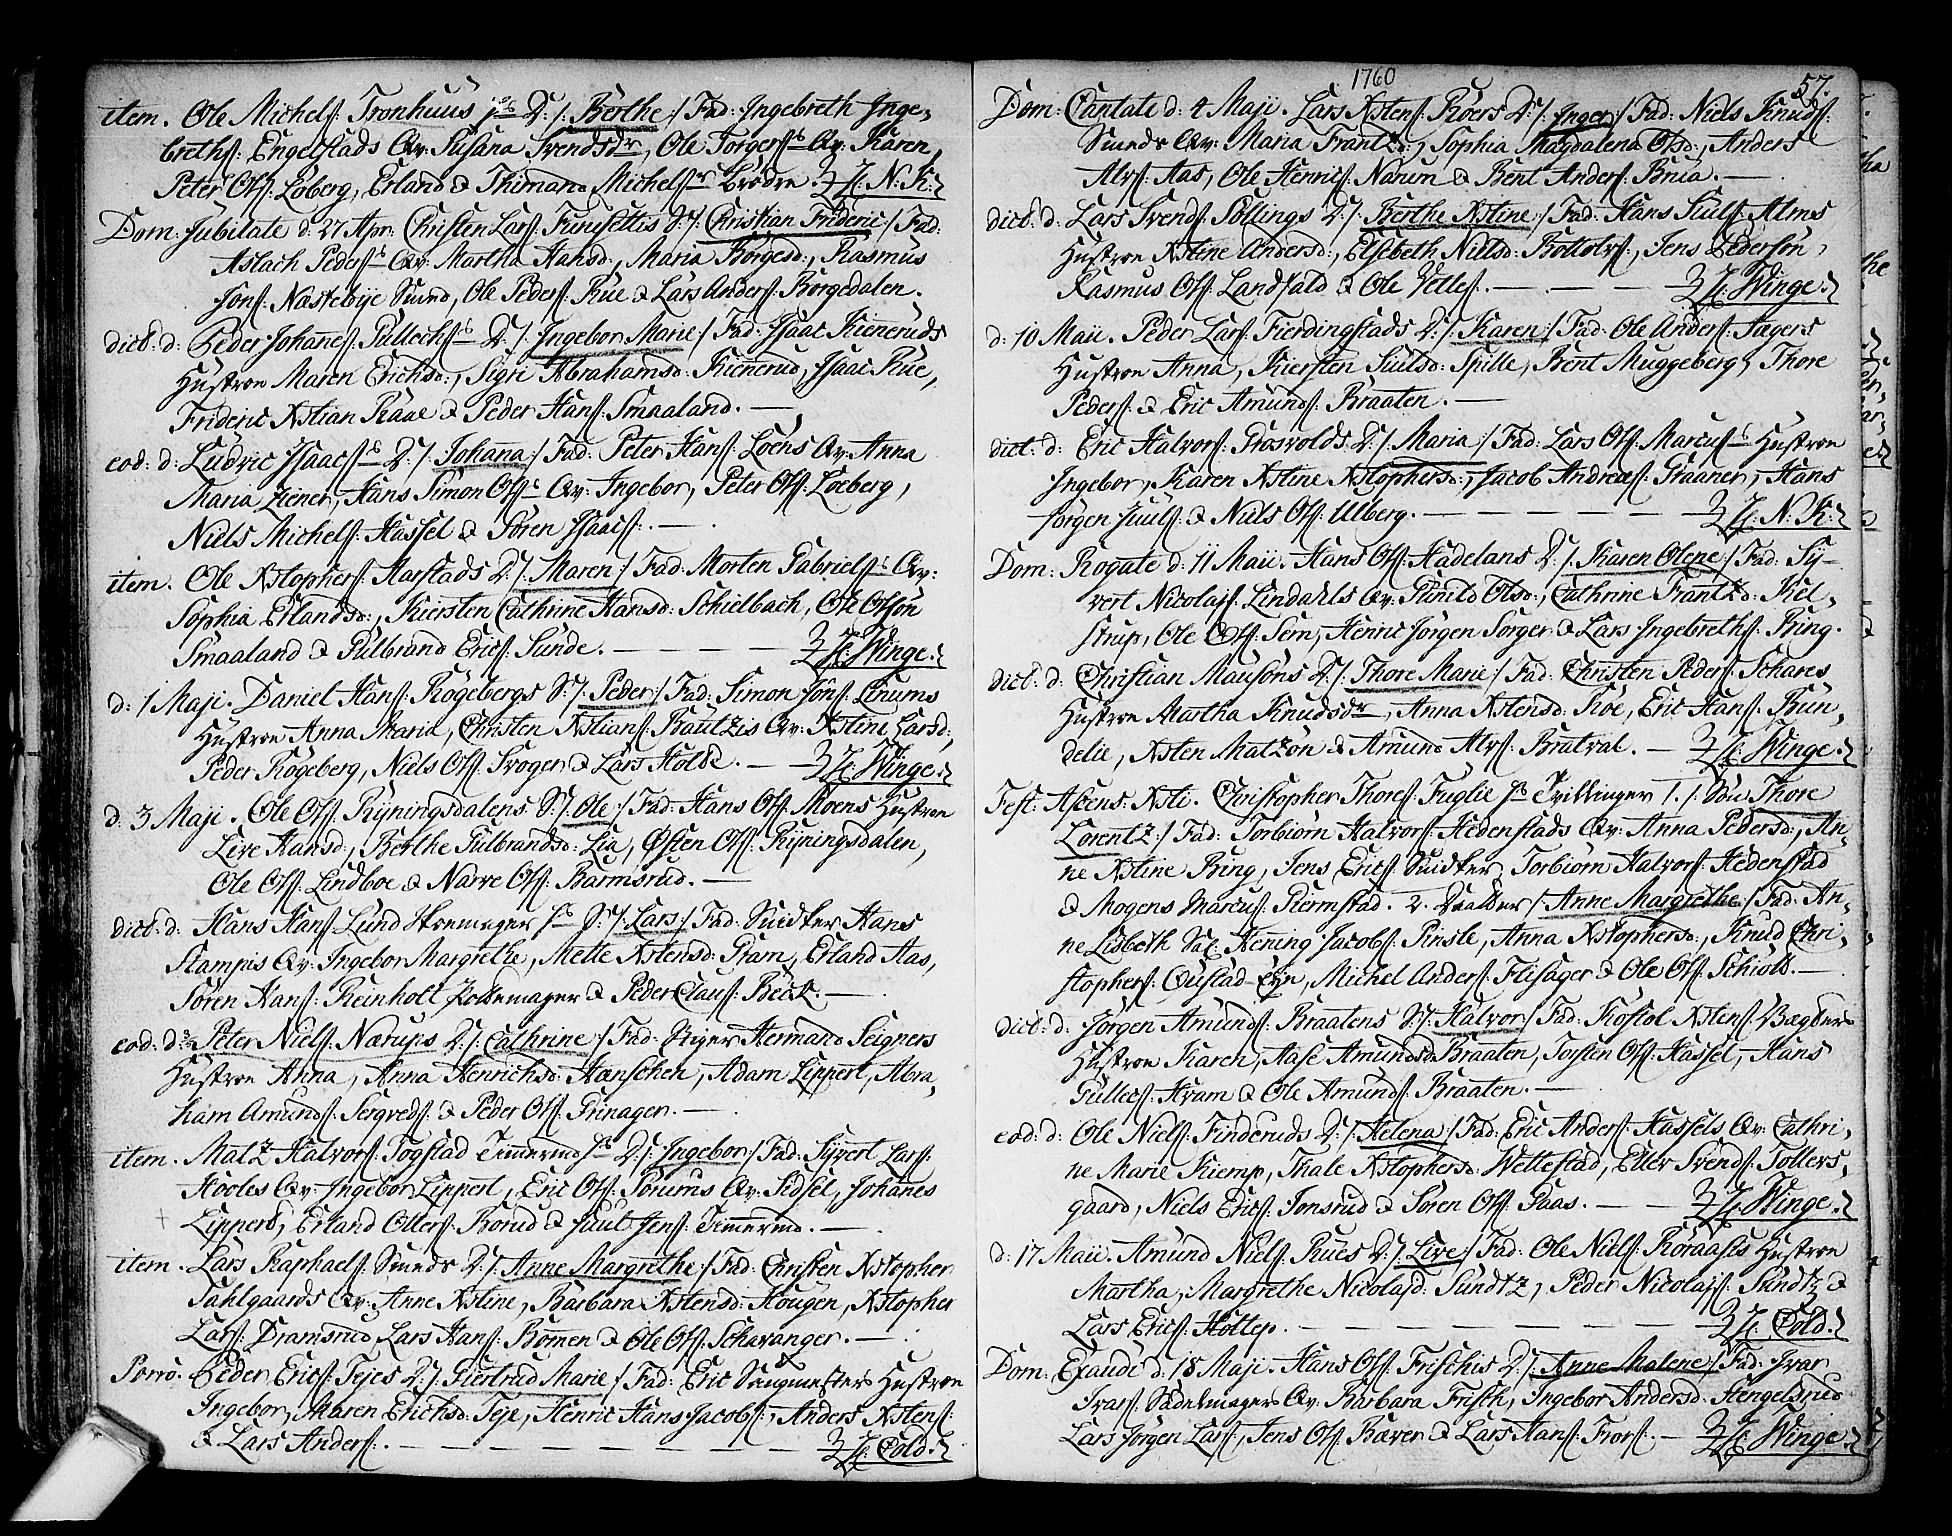 item. Ole Michels: Tronhuus D:/: Berthe :/ Fad: Ingebreth Inge-
breths: Engelstads Qv: Susana Svendsdr, Ole Torgers Qv: Karen,
Peter Ols: Löberg, Erland & Thimand Michelss Brödre. H: N. K:
Dom: Jubilate d: 27 Apr: Christen Lars: Funisettis S:/: Christian Frideric :/ Fad:
Aslach Peders Qv: Martha Hansd:, Maria Börgesd:, Rasmus
Jons: Nastebye Smed, Ole Peders: Rue & Lars Anders: Borgedalen.
dict: d: Peder Johanes: Gullechs D:/: Ingebor Marie :/ Fad: Isaac Kieneruds
Hustroe Maren Erichsd:, Sigri Abrahamsd: Kienerud, Isaac Rue,
Frideric Xstian Raae & Peder Hans: Smaaland.
eod: d: Ludvic Isaacs D:/: Johana :/ Fad: Peter Hans: Loens Qv: Anna
Maria Ziener, Hans Simon Ols Qv: Ingebor, Peter Ols: Löeberg,
Niels Michels: Hassel & Sören Isaacs:.
item. Ole Xstophers: Harstads D:/: Maren :/ Fad: Morten Gabriels Qv:
Sophia Erlandsd:, Kiersten Cathrine Hansd: Schielbach, Ole Olsön
Smaaland & Gulbrand Erics: Sunde. H: Winge.
d: 1 Maji. Daniel Hans: Rögebergs S:/: Peder :/ Fad: Simon Jöns: Linums
Hustroe Anna Maria, Christen Xstians: Bautzis Qv: Xstine Larsd:,
Peder Rögeberg, Niels Ols: Svoger & Lars Holde. H: Winge.
d: 3 Maji. Ole Ols: Ryningsdalens S:/: Ole :/ Fad: Hans Ols: Moens Hustroe
Live Hansd:, Berthe Gulbrandsd: Lia, Östen Ols: Ryningsdalen,
Ole Ols: Lindboe & Narve Ols: Barmsrud.
dict: d: Hans Hans: Lund Skoemager S:/: Lars :/ Fad: Snidker Hans
Stampis Qv: Ingebor Margrethe, Mette Xstensd: Gram, Erland Aas,
Sören Hans: Reinholt Pottemager & Peder Claus: Beck.
eod: d: Peter Niels: Nærups D:/: Cathrine :/ Fad: Stiger Hermand Seigners
Hustroe Anna, Anna Henrichsd: Hanschen, Adam Lippert, Abra-
ham Amunds: Sergveds: & Peder Ols: Grinager.
item. Matz Halvors: Togstad Timermds D:/: Ingebor :/ Fad: Syvert Lars:
Hooles Qv: Ingebor Lippert, Eric Ols: Sorums Qv: Sidsel, Johanes
Lippert, Erland Ollers: Borud & Juul Jens: Timermd.
item. Lars Raphaels: Smeds D:/: Anne Margrethe :/ Fad: Christen Xstopher
Dahlgaards Qv: Anne Xstine, Barbara Xstensd: Hougen, Xstopher
Lars: Dramsrud, Lars Hans: Bömen & Ole Ols: Schavanger.
Porro. Peder Erics: Tejes D:/: Giertrud Marie :/ Fad: Eric Saugmesters Hustroe
Ingebor, Maren Erichsd: Teje, Henric Hans Jacobs:, Anders Xstens:
& Lars Anders:. H: Cold.
1760
57.
Dom: Cantate d: 4 Maji. Lars Xstens: Röers D:/: Inger :/ Fad: Niels Knuds:
Smeds Qv: Maria Frantzd:, Sophia Magdalena Olsd:, Anders
Alvs: Aas, Ole Henrics: Narum & Bent Anders: Brua.
dict: d: Lars Svends: Söllings D:/: Berthe Xstine :/ Fad: Hans Siuls: Alms
Hustroe Xstine Andersd:, Elsebeth Nielsd: Bottolvs:, Jens Pedersön,
Rasmus Ols: Landfald & Ole Vetles:. H: Winge.
d: 10 Maii. Peder Lars: Fierdingstads D:/: Karen :/ Fad: Ole Anders: Sagers
Hustroe Anna, Kiersten Siulsd: Spille, Bent Muggeberg, Thore
Peders: & Eric Amunds: Braaten.
dict: d: Eric Halvors: Grosvolds D:/: Maria :/ Fad: Lars Ols: Marcus Hustroe
Ingebor, Karen Xstine Xstophersd:, Jacob Andreas: Graaner, Hans
Jorgen Juuls: & Niels Ols: Ulberg. H: N. K:
Dom: Rogate d: 11 Maii. Hans Ols: Hadelans D:/: Karen Olene :/ Fad: Sy-
vert Nicolajs: Lindahls Qv: Gunild Olsd:, Cathrine Frantzd: Kiel-
strup, Ole Ols: Sem, Henric Jörgen Sorger & Lars Ingebreths: Bring.
dict: d: Christian Mausöns D:/: Thore Marie :/ Fad: Christen Peders: Schares
Hustroe Martha Knudsdr, Anna Xstensd: Roe, Eric Hans: Brun-
delie, Xsten Matzön & Amund Alvs: Bratval. H: Winge.
Fest: Ascens: Xsti. Christopher Thores: Fuglie Tvillinger 1. /: Sön Thore
Lorentz :/ Fad: Torbiörn Halvors: Hedenstads Qv: Anna Pedersd:, An-
ne Xstine Bring, Jens Erics: Snidker, Torbiörn Halvors: Hedenstad
& Mogens Marcus: Giermstad. 2. Daatter /: Anne Margrethe :/ Fad: An-
ne Lisbeth Sal: Hening Jacobs: Pinsle, Anna Xstophersd:, Knud Chri-
stophers: Qvistad-Eye, Michel Anders: Flisager & Ole Ols: Schiöld.
dict: d: Jörgen Amunds: Braatens S:/: Halvor :/ Fad: Kostol Xstens: Bægkers
Hustroe Karen, Aase Amundsd: Braaten, Torsten Ols: Hassel, Hans
Gullecs: Hvam & Ole Amunds: Braaten.
eod: d: Ole Niels: Finderuds D:/: Helena :/ Fad: Eric Anders: Hassels Qv: Cathri-
ne Marie Kiemp, Thale Xstophersd: Wettestad, Eller Svends: Tollers-
gaard, Niels Erics: Jonsrud & Sören Ols: Gaas. H: Winge.
d: 17 Maii. Amund Niels: Rues D:/: Live :/ Fad: Ole Niels: Koraasis Hustroe
Martha, Margrethe Nicolajd: Sundtz, Peder Nicolajs: Sundtz &
Lars Erics: Holtep. H: Cold.
Dom: Exaudi d: 18 Maji. Hans Ols: Frischis D:/: Anne Malene :/ Fad: Ivar
Ivars: Sadelmager Qv: Barbara Frisch, Ingebor Andersd: Hengelsrud
Lars Jörgen Lars:, Jens Ols: Bæver & Lars Hans: Frors:. H: Winge.